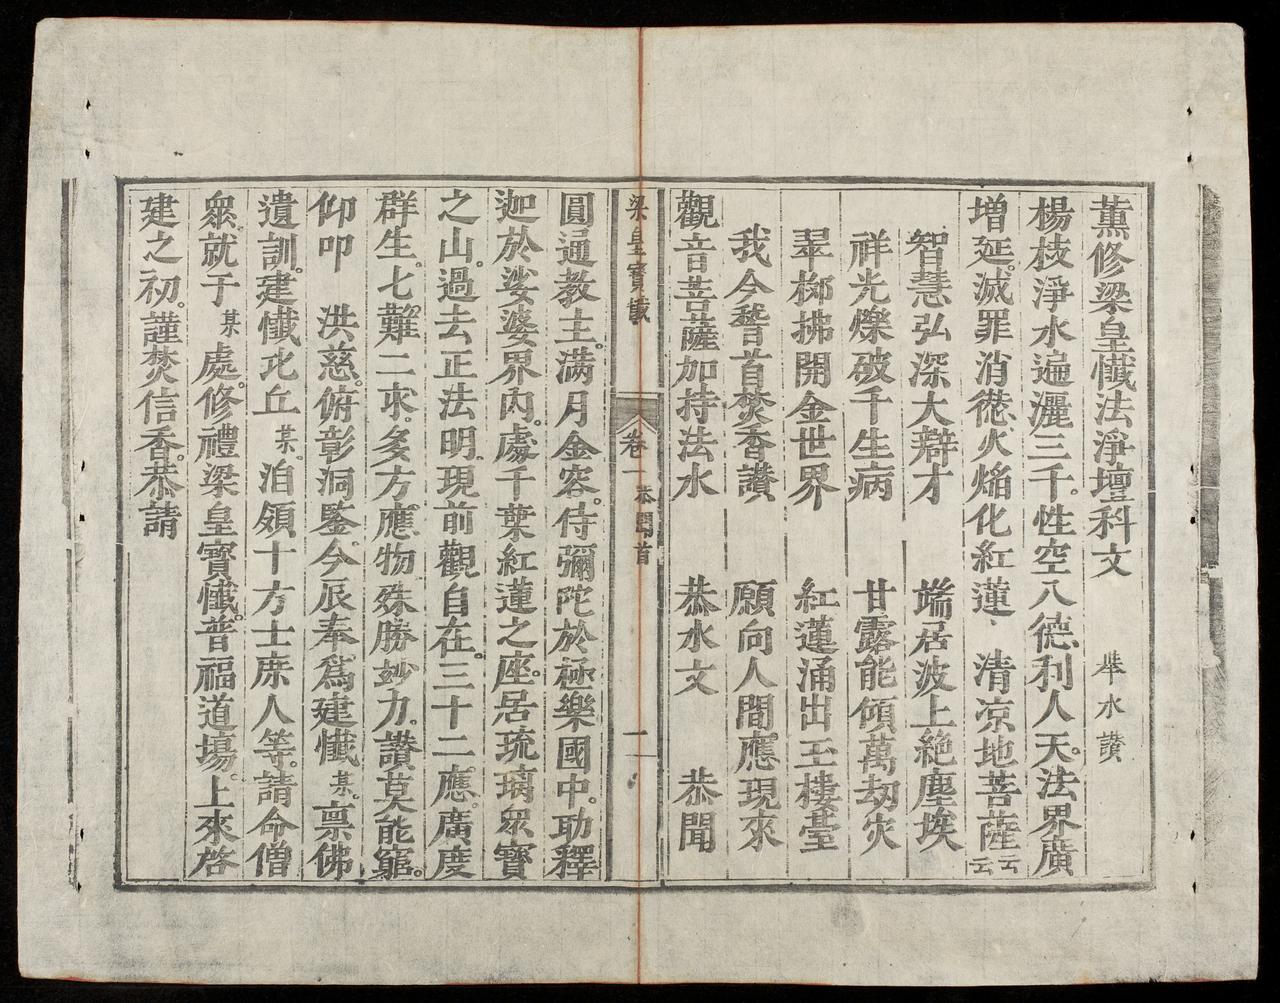 薰修梁皇懺法淨壇科文　舉水讚
楊枝淨水遍灑三千。性空八德利人天。法界廣
增延。滅罪消愆、火焰化紅蓮、　清凉地菩薩云云
智慧弘深大辯才　端居波上絶塵埃
祥光爍破千生病　甘露能傾萬劫灾
翠栁拂開金世界　紅蓮涌出玉樓臺
我今𥡴首焚香讃　願向人間應現來
觀音菩薩加持法水　恭水文　恭聞
梁皇寶懺　卷一　首　一
圓通教主。满月金容。侍彌陀於極樂國中。助釋
迦於娑婆界内。處千葉紅蓮之座。居琉璃眾寶
之山。過去正法明。現前觀自在。三十二應。廣度
群生。七難二求。多方應物。殊勝妙力。讃莫能窮。
仰叩　洪慈。俯彰洞鑒。今辰奉爲建懺某。禀佛
遺訓。建懺比丘某。洎領十方士庶人等。請命僧
眾。就于某處。修禮梁皇寶懺。普福道場。上來啓
建之初。謹焚信香。恭請